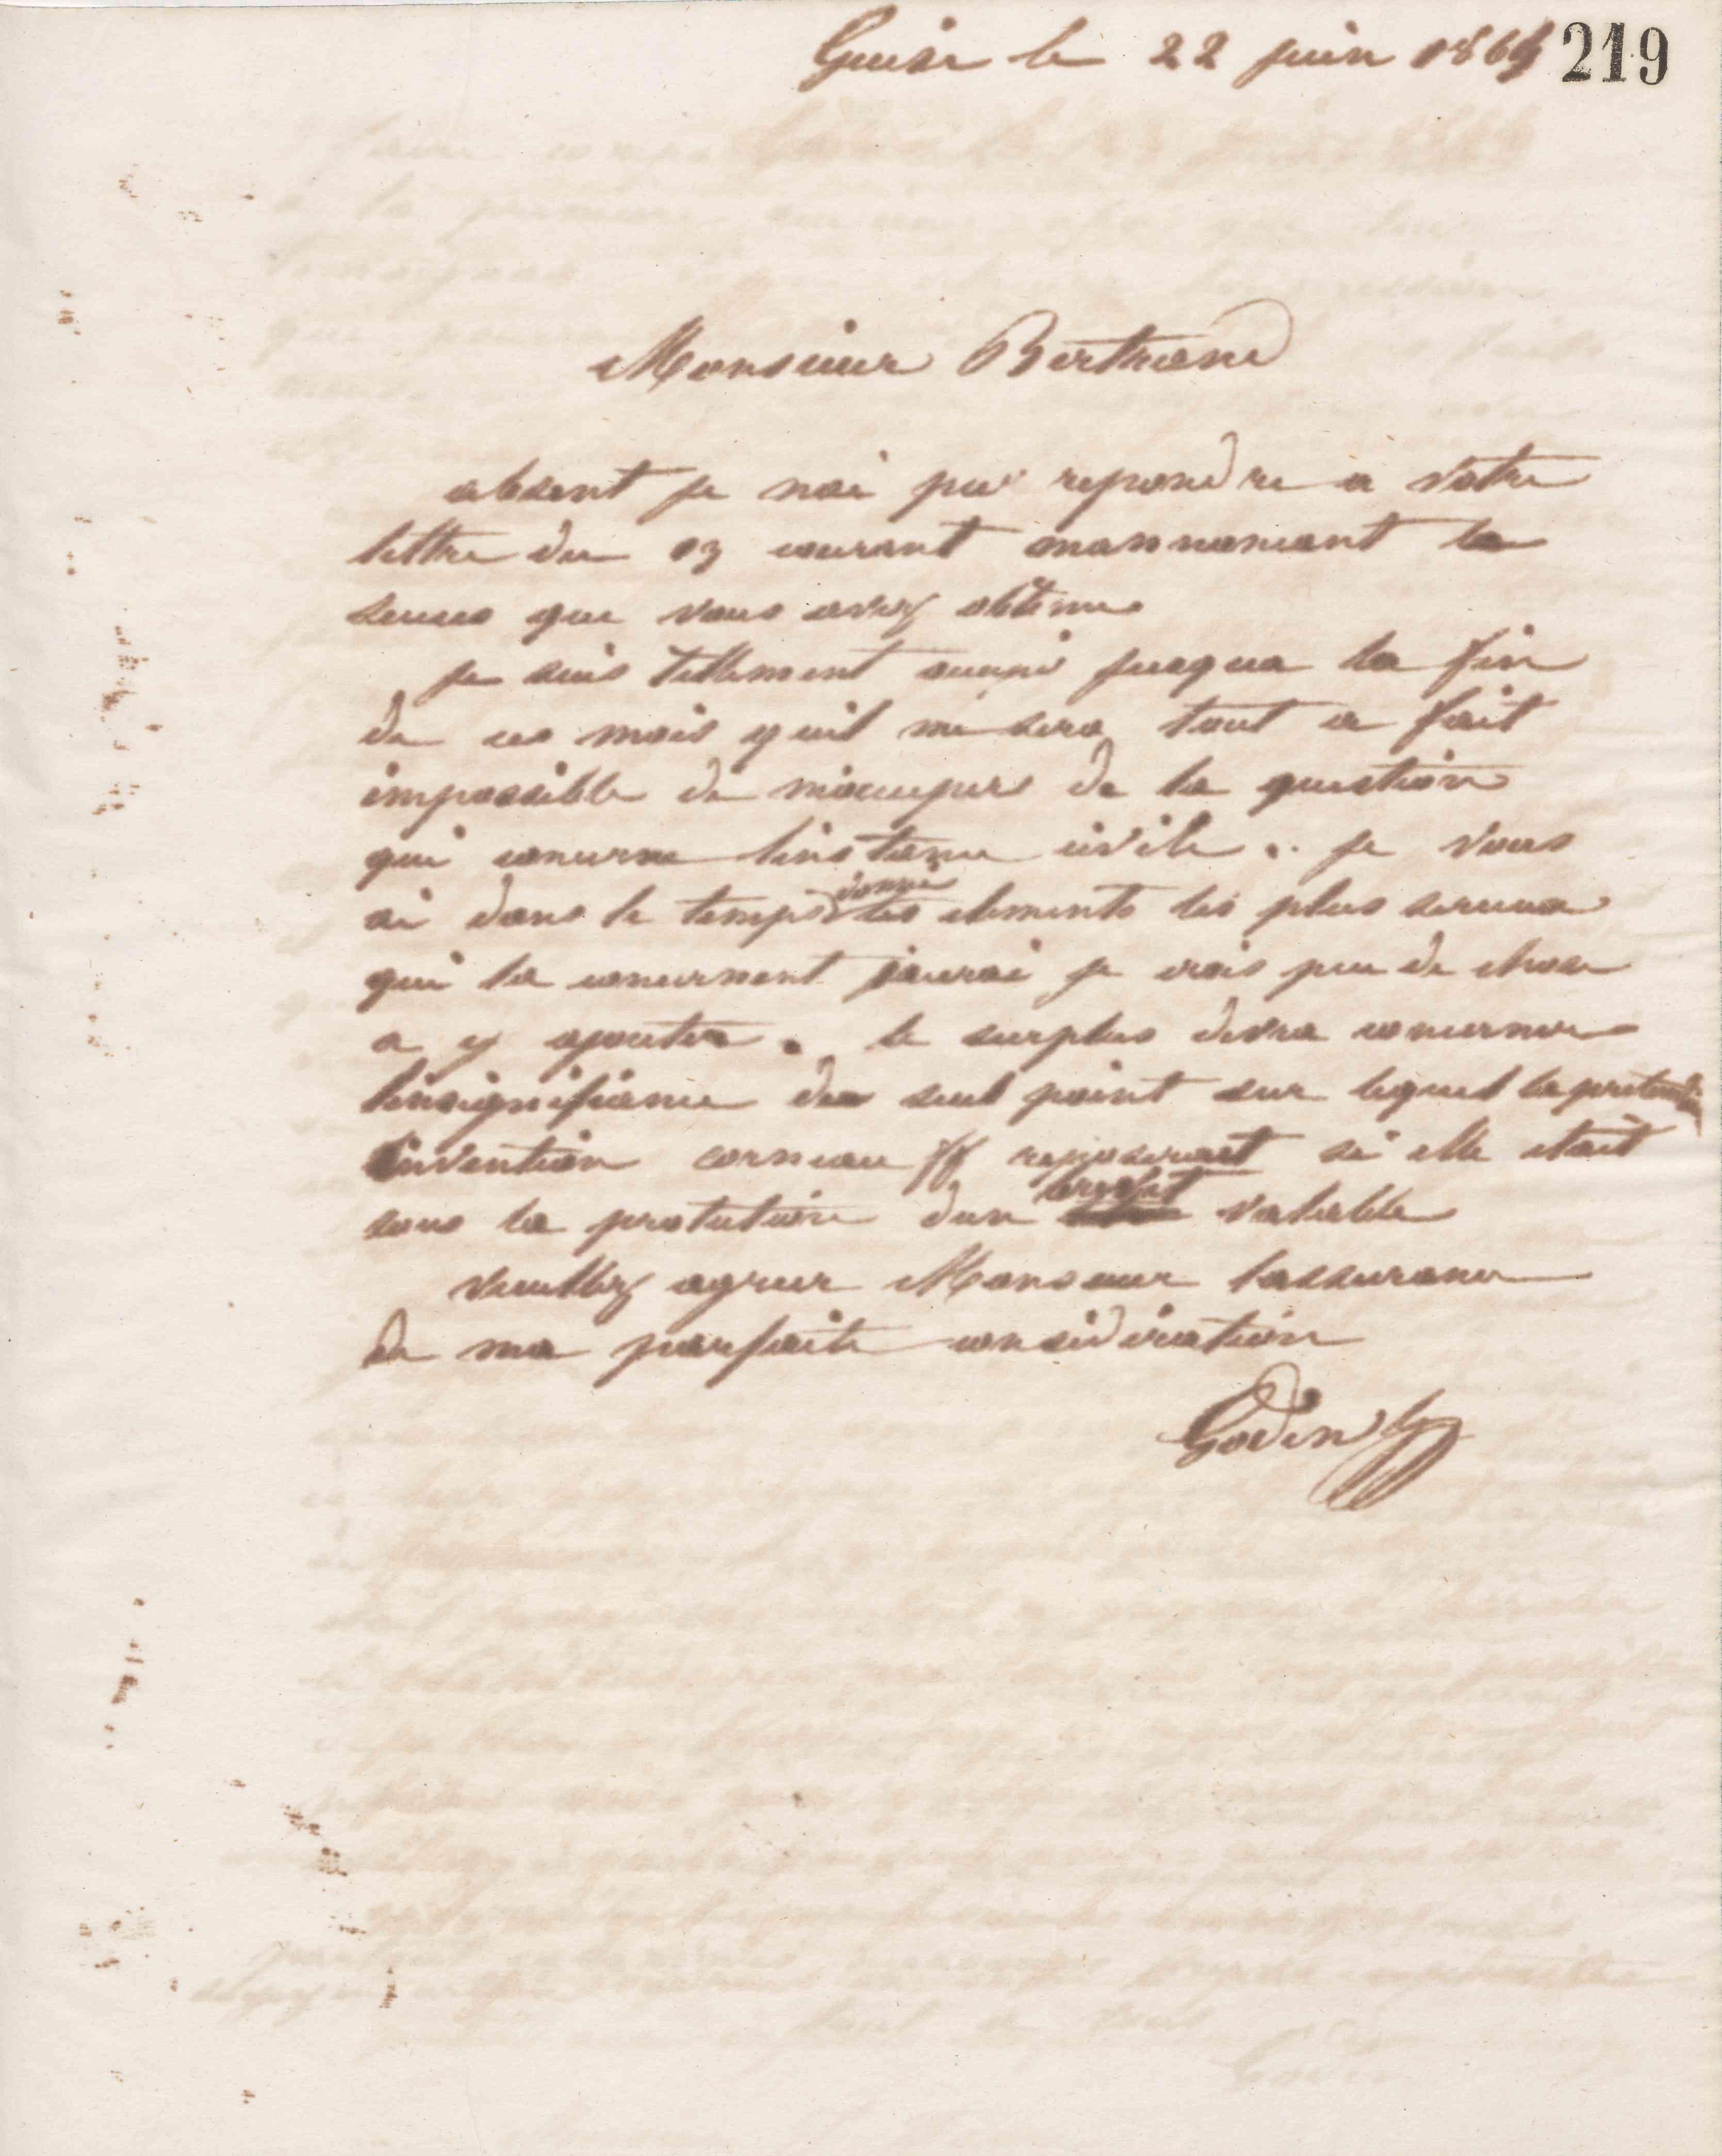 Guise le 22 juin 1864 219
Monsieur Bertrand
absent je nai pu repondre a votre
lettre du 13 courant mannoncant le
succes que vous avez obtenu
je suis tellement occupé jusqua la fin
de ce mois quil me sera tout a fait
impossible de moccuper de la question
qui concerne linstance civile. je vous
ai dans le temps donné les elements les plus serieux
qui la concernent jaurai je crois peu de chose
a y ajouter. le surplus devra concerner
linsignifiance du seul point sur lequel la pretendue
invention corneau ff reposerait si elle etait
sous la protection dun brevet valable
veuillez agreer Monsieur lassurance
de ma parfaite consideration
Godin